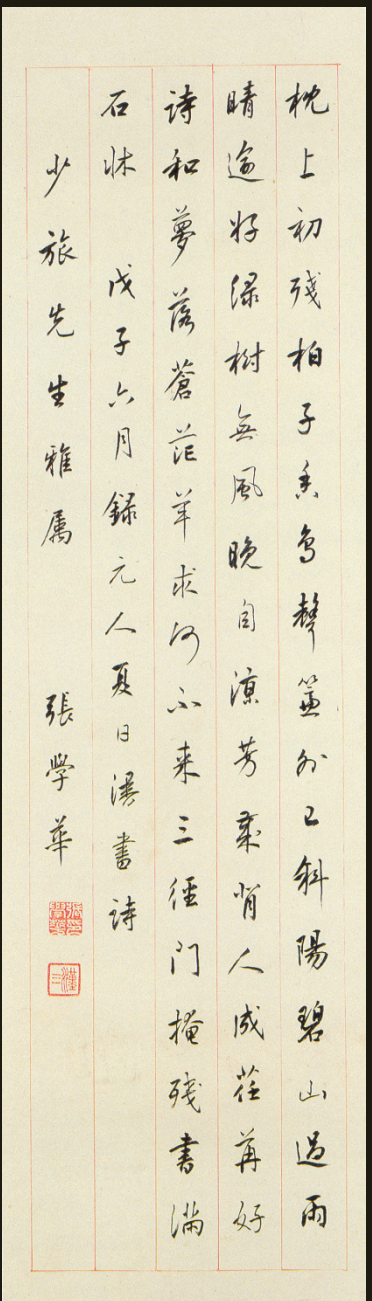 枕上初殘柏子香鳥聲簾外已斜陽碧山過雨
晴逾好綠樹無風晚自涼芳歲背人成荏苒好
詩和夢落蒼茫羊求何不來三徑門掩殘書滿
石牀 戊子六月錄元人夏日漫書詩
少旅先生雅屬 張學華